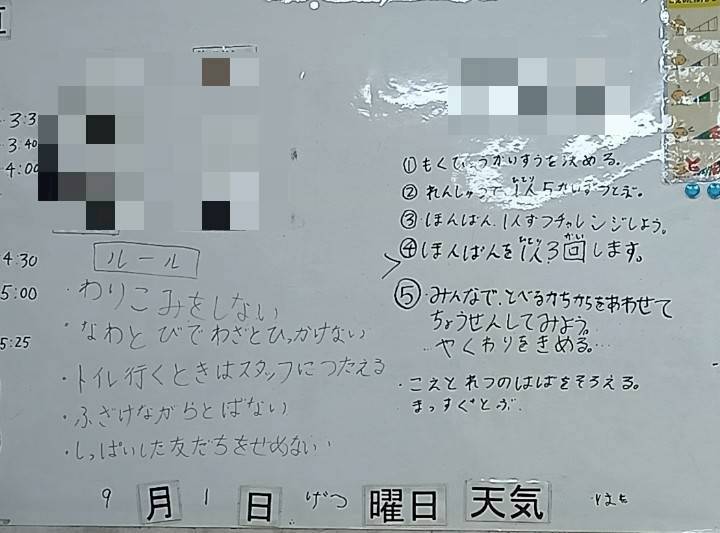 3:3
3.40
4:00
4:30
5:00
5:25
ルール
・わりこみをしない
・なわとびでわざとひっかけない
・トイレ行くときはスタッフにつたえる
・ふざけながらとばない
・しっぱいした友だちをせめない
①もくひょうかいすうを決める。
②れんしゅうで1人5かいずつとぶ。
③ほんばん、1人ずつチャレンジしよう。
④ほんばんを1人3回します。
⑤みんなで、とべるかちからをあわせて
ちょうせんしてみよう。
やくわりをきめる。
・こえとれつのはばをそろえる。
まっすぐとぶ。
9月1日 げつ曜日 天気